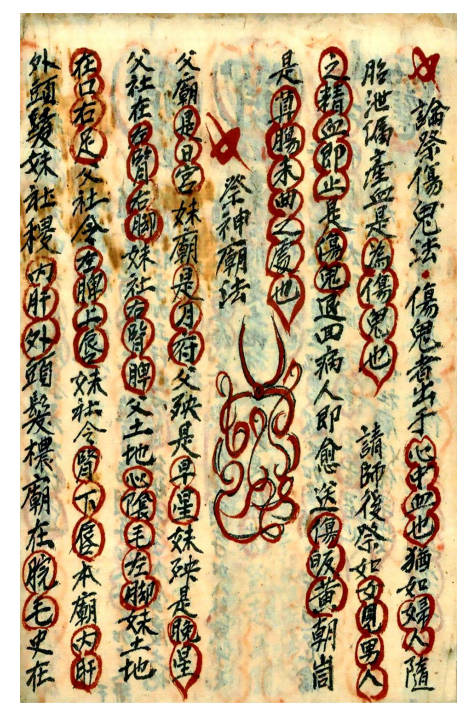 論祭傷鬼法·傷鬼者出于心中血也猶如婦人隨
胎泄漏產血是為傷鬼也 請師後祭如見男人
之精血即止是傷鬼退回病人即愈送傷皈黃朝
是腸末曲之處也
祭神廟法
父廟是日宮妹廟是月府父殃是早星妹殃是晚星
父社在右腎右脚妹社右腎脾父土地心陰毛左脚妹土地
在口右足父社令左脾上唇妹社令腎下唇本廟內肝
外頭髮妹社稷內肝外頭髮檂廟在腕毛史在